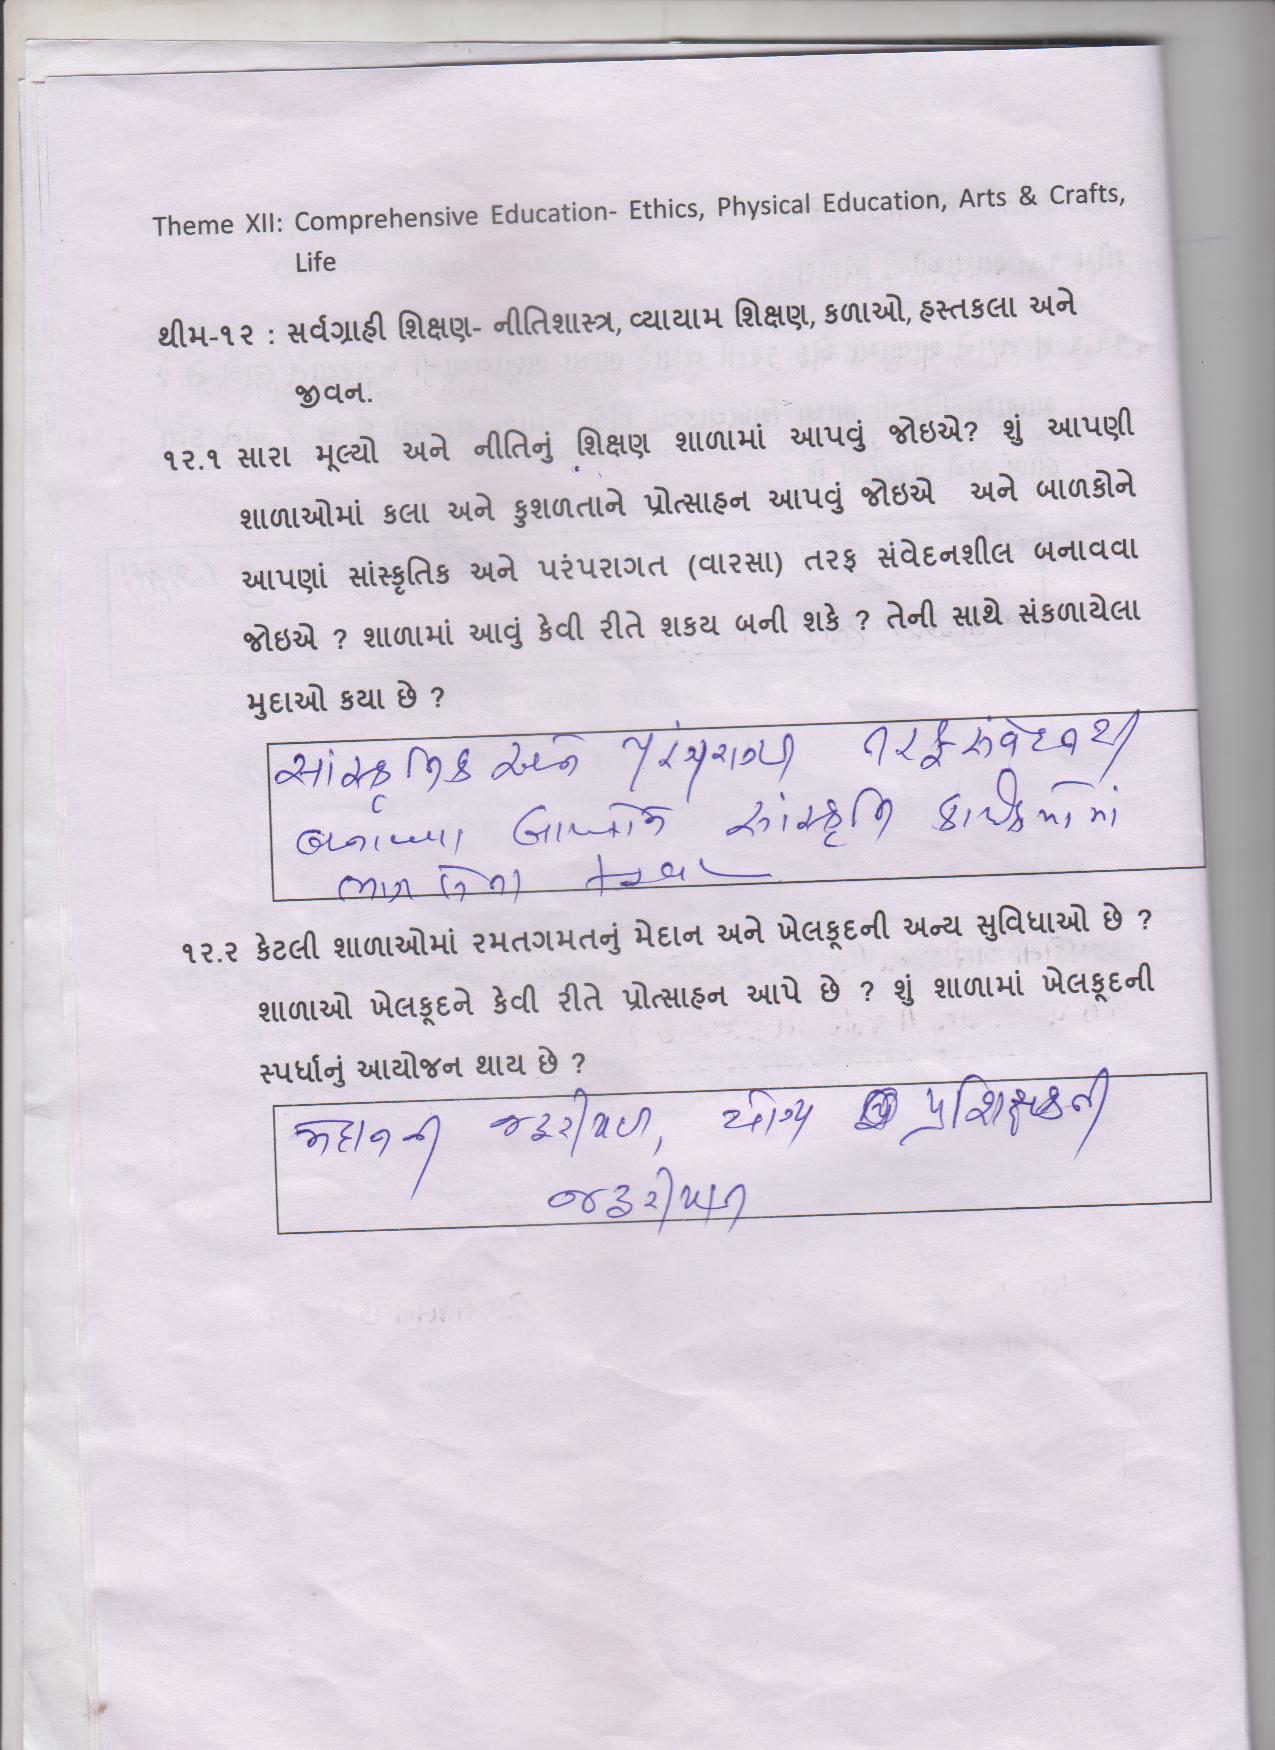 Theme XII: Comprehensive Education- Ethics, Physical Education, Arts & Crafts,
Life
થીમ-૧૨ : સર્વગ્રાહી શિક્ષણ- નીતિશાસ્ત્ર, વ્યાયામ શિક્ષણ, કળાઓ, હસ્તકલા અને
જીવન.
૧૨.૧ સારા મૂલ્યો અને નીતિનું શિક્ષણ શાળામાં આપવું જોઇએ? શું આપણી
શાળાઓમાં કલા અને કુશળતાને પ્રોત્સાહન આપવું જોઇએ અને બાળકોને
આપણાં સાંસ્કૃતિક અને પરંપરાગત (વારસા) તરફ સંવેદનશીલ બનાવવા
જોઇએ ? શાળામાં આવું કેવી રીતે શકય બની શકે ? તેની સાથે સંકળાયેલા
મુદાઓ કયા છે ?
સાંસ્કૃતિક અને તરફ
સાંસ્કૃતિ કાર્યક્રમોમાં
ભાગ
૧૨.૨ કેટલી શાળાઓમાં રમતગમતનું મેદાન અને ખેલકૂદની અન્ય સુવિધાઓ છે ?
શાળાઓ ખેલકૂદને કેવી રીતે પ્રોત્સાહન આપે છે ? શું શાળામાં ખેલકૂદની
સ્પર્ધાનું આયોજન થાય છે ?
મેદાનની જરૂરીયાત, યોગ્ય પ્રશિક્ષકની
જરૂરીયાત